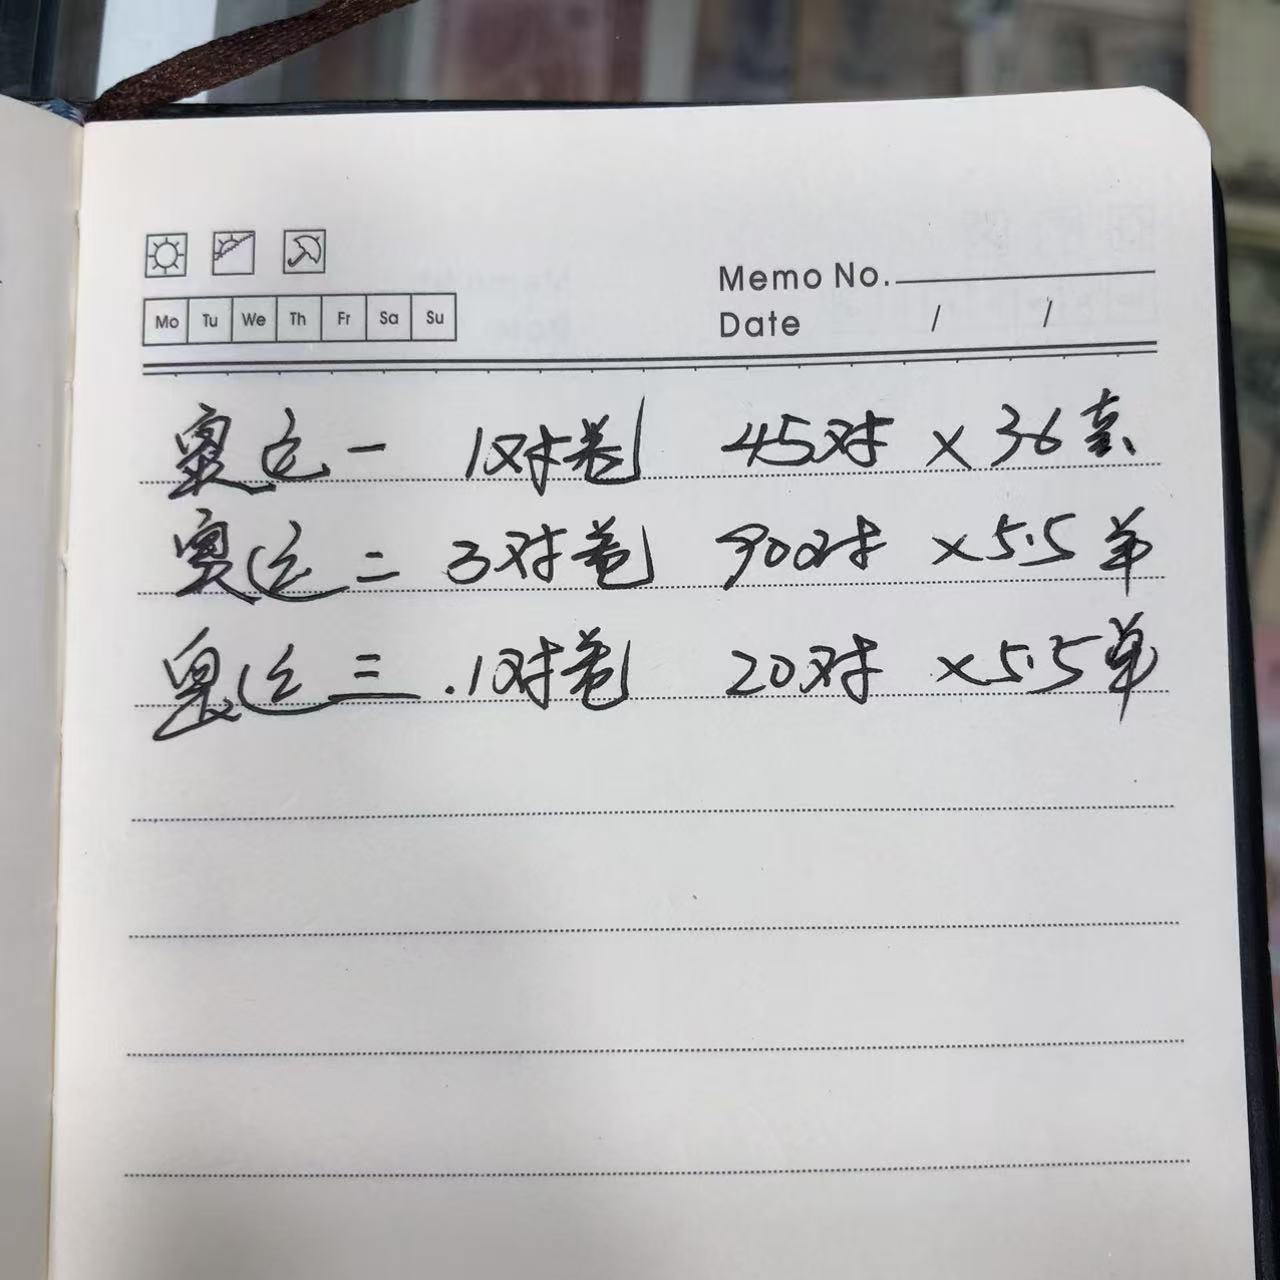 Memo No.
Date / /
Mo Tu We Th Fr Sa Su
奥运一 1对卷 45对 × 36套
奥运二 3对卷 90对 × 5.5单
奥运三 .1对卷 20对 × 5.5单